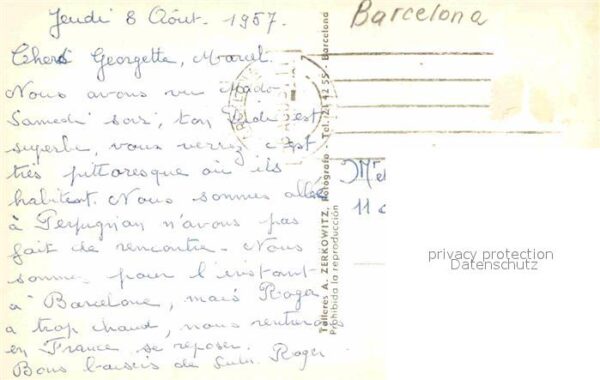 Jeudi 8 Août. 1957.
Barcelona
Chers Georgette, Marcel.
Nous avons vu Mado
Samedi soir, ton est
superbe, vous verrez c'est
très pittoresque où ils
habitent. Nous sommes allés
à Perpugnan n'avons pas
fait de rencontre. Nous
sommes pour l'instant
à Barcelone, mais Roger
a trop chaud, nous rentrons
en France se reposer.
Bons baisers de Roger
Talleres A. ZERKOWITZ, Fotógrafo - Tel. (2) 42 55 - Barcelona
Prohibida la reproducción
Mr et
11
privacy protection
Datenschutz